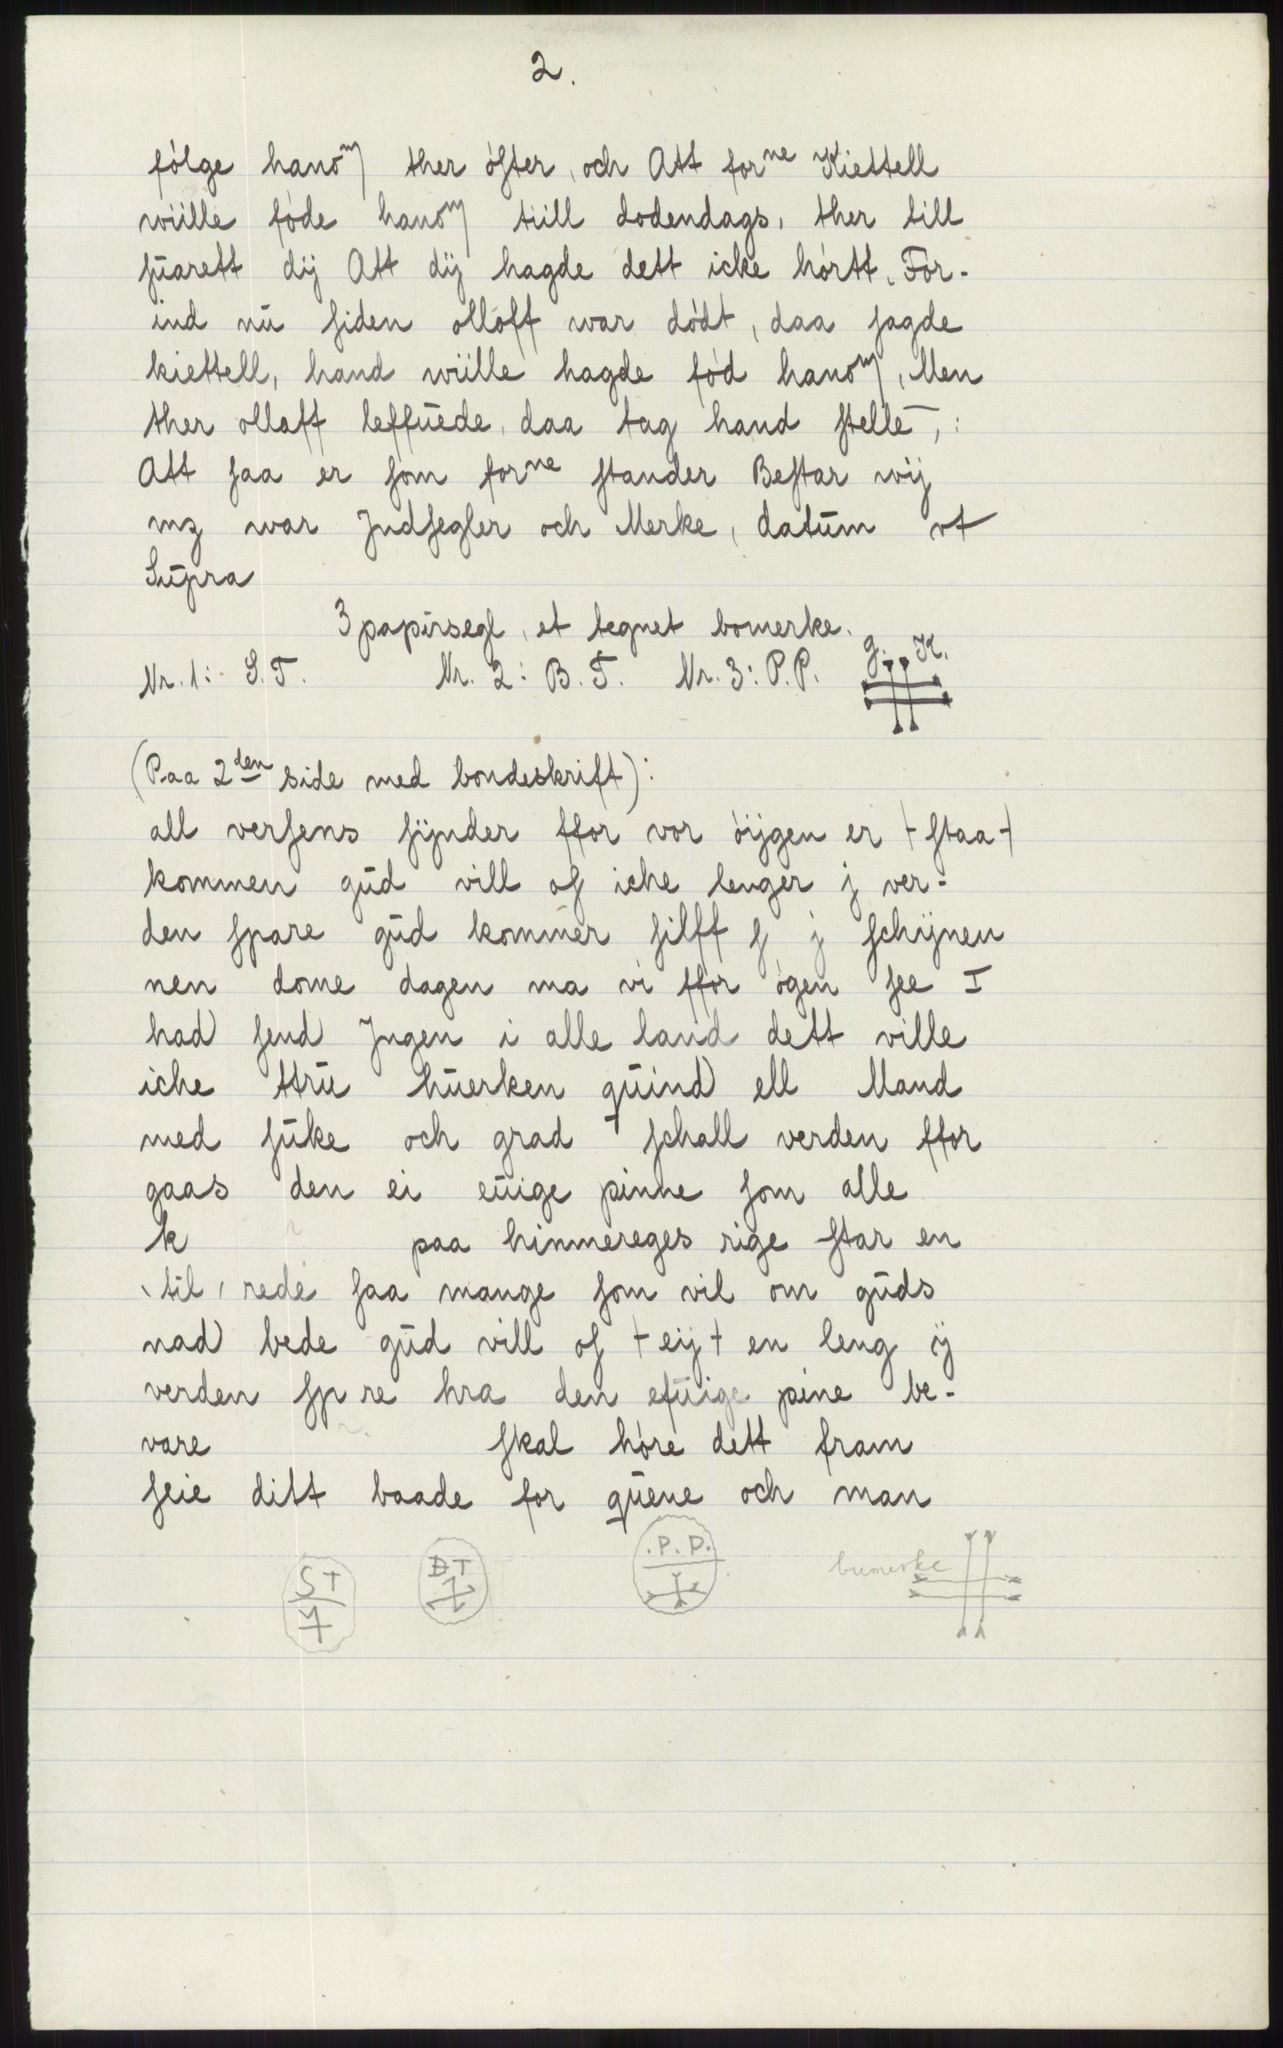 2.
følge hanom ther øfter, och Att forne Kiettell
wiille føde hanom tiill dodendags, ther till
suarett dij Att dij hagde dett icke hørtt. For-
ind nu siden olloff war dødt, daa sagde
kiettell, hand wiille hagde fød hanom, Men
ther ollaff leffuede, daa tag hand stelle,:
Att saa er som forne stander Bestar wij
mz war Jndsegler och Merke, datum vt
Supra
3 papirsegl, et tegnet bomerke.
Nr. 1: S.T. Nr. 2: B.T. Nr. 3: P.P. G. K.
(Paa 2den side med bondeskrift):
all versens sijnder ffor vor øijgen er + staa +
kommen gud vill os iche lenger j ver-
den spare gud kommer silff s j schijnen
nen dome dagen ma vi ffor øgen see I
had send Jngen i alle land dett ville
iche ttru huerken quind ell Mand
med suke och grad schall verden ffor
gaas den ei euige pinne som alle
k paa himmereges rige star en
til rede saa mange som vil om guds
nad bede gud vill os + eij + en leng ij
verden sp re hra den efuige pine be-
vare skal høre dett fram
seie ditt baade for quene och man
S T
B T
.P.P.
bumerke